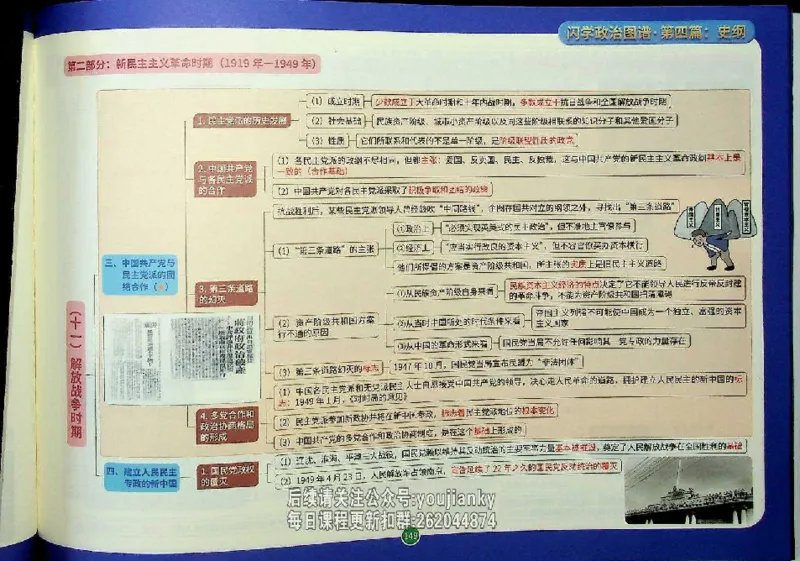 闪学政治图谱·第四篇：史纲
第二部分：新民主主义革命时期（1919年—1949年）
（十一）解放战争时期
三、中国共产党与民主党派的团结合作（★）
1. 民主党派的历史发展
（1）成立时期
少数成立于大革命时期和十年内战时期，多数成立于抗日战争和全国解放战争时期
（2）社会基础
民族资产阶级、城市小资产阶级以及同这些阶级相联系的知识分子和其他爱国分子
（3）性质
它们所联系和代表的不是单一阶级，是阶级联盟性质的政党
2. 中国共产党与各民主党派的合作
（1）各民主党派的政纲不尽相同，但都主张：爱国、反卖国、民主、反独裁，这与中国共产党的新民主主义革命政纲基本上是
一致的（合作基础）
（2）中国共产党对各民主党派采取了积极争取和团结的政策
3. 第三条道路的幻灭
抗战胜利后，某些民主党派领导人员曾鼓吹“中间路线”，企图在国共对立的纲领之外，寻找出“第三条道路”
（1）“第三条道路”的主张
①政治上
“必须实现英美式的民主政治”，但不准地主官僚参与
②经济上
“应当实行改良的资本主义”，但不容官僚买办资本横行
他们所提倡的方案是资产阶级共和国，所主张的实质上是旧民主主义道路
（2）资产阶级共和国方案行不通的原因
①从民族资产阶级自身来看
民族资本主义经济的特点决定了它不能领导人民进行反帝反封建
的革命斗争，不能为资产阶级共和国扫清障碍
②从当时中国所处的时代条件来看
帝国主义列强不可能使中国成为一个独立、富强的资本
主义国家
③从中国的革命形式来看
国民党当局不允许任何影响其一党专政的力量存在
（3）第三条道路幻灭的标志
1947年10月，国民党当局宣布民盟为“非法团体”
4. 多党合作和政治协商格局的形成
（1）中国各民主党派和无党派民主人士自愿接受中国共产党的领导，决心走人民革命的道路，拥护建立人民民主的新中国的标
志：1949年1月，《对时局的意见》
（2）民主党派参加新政协并将在新中国参政，标志着民主党派地位的根本变化
（3）中国共产党的多党合作和政治协商制度，是在这个基础上形成的
四、建立人民民主专政的新中国
1. 国民党政权的覆灭
（1）辽沈、淮海、平津三大战役，国民党赖以维持其反动统治的主要军事力量基本被摧毁，奠定了人民解放战争在全国胜利的基础
（2）1949年4月23日，人民解放军占领南京，宣告延续了22年之久的国民党反动统治的覆灭
后续请关注公众号:youjianky
每日课程更新扣群:262044874
149